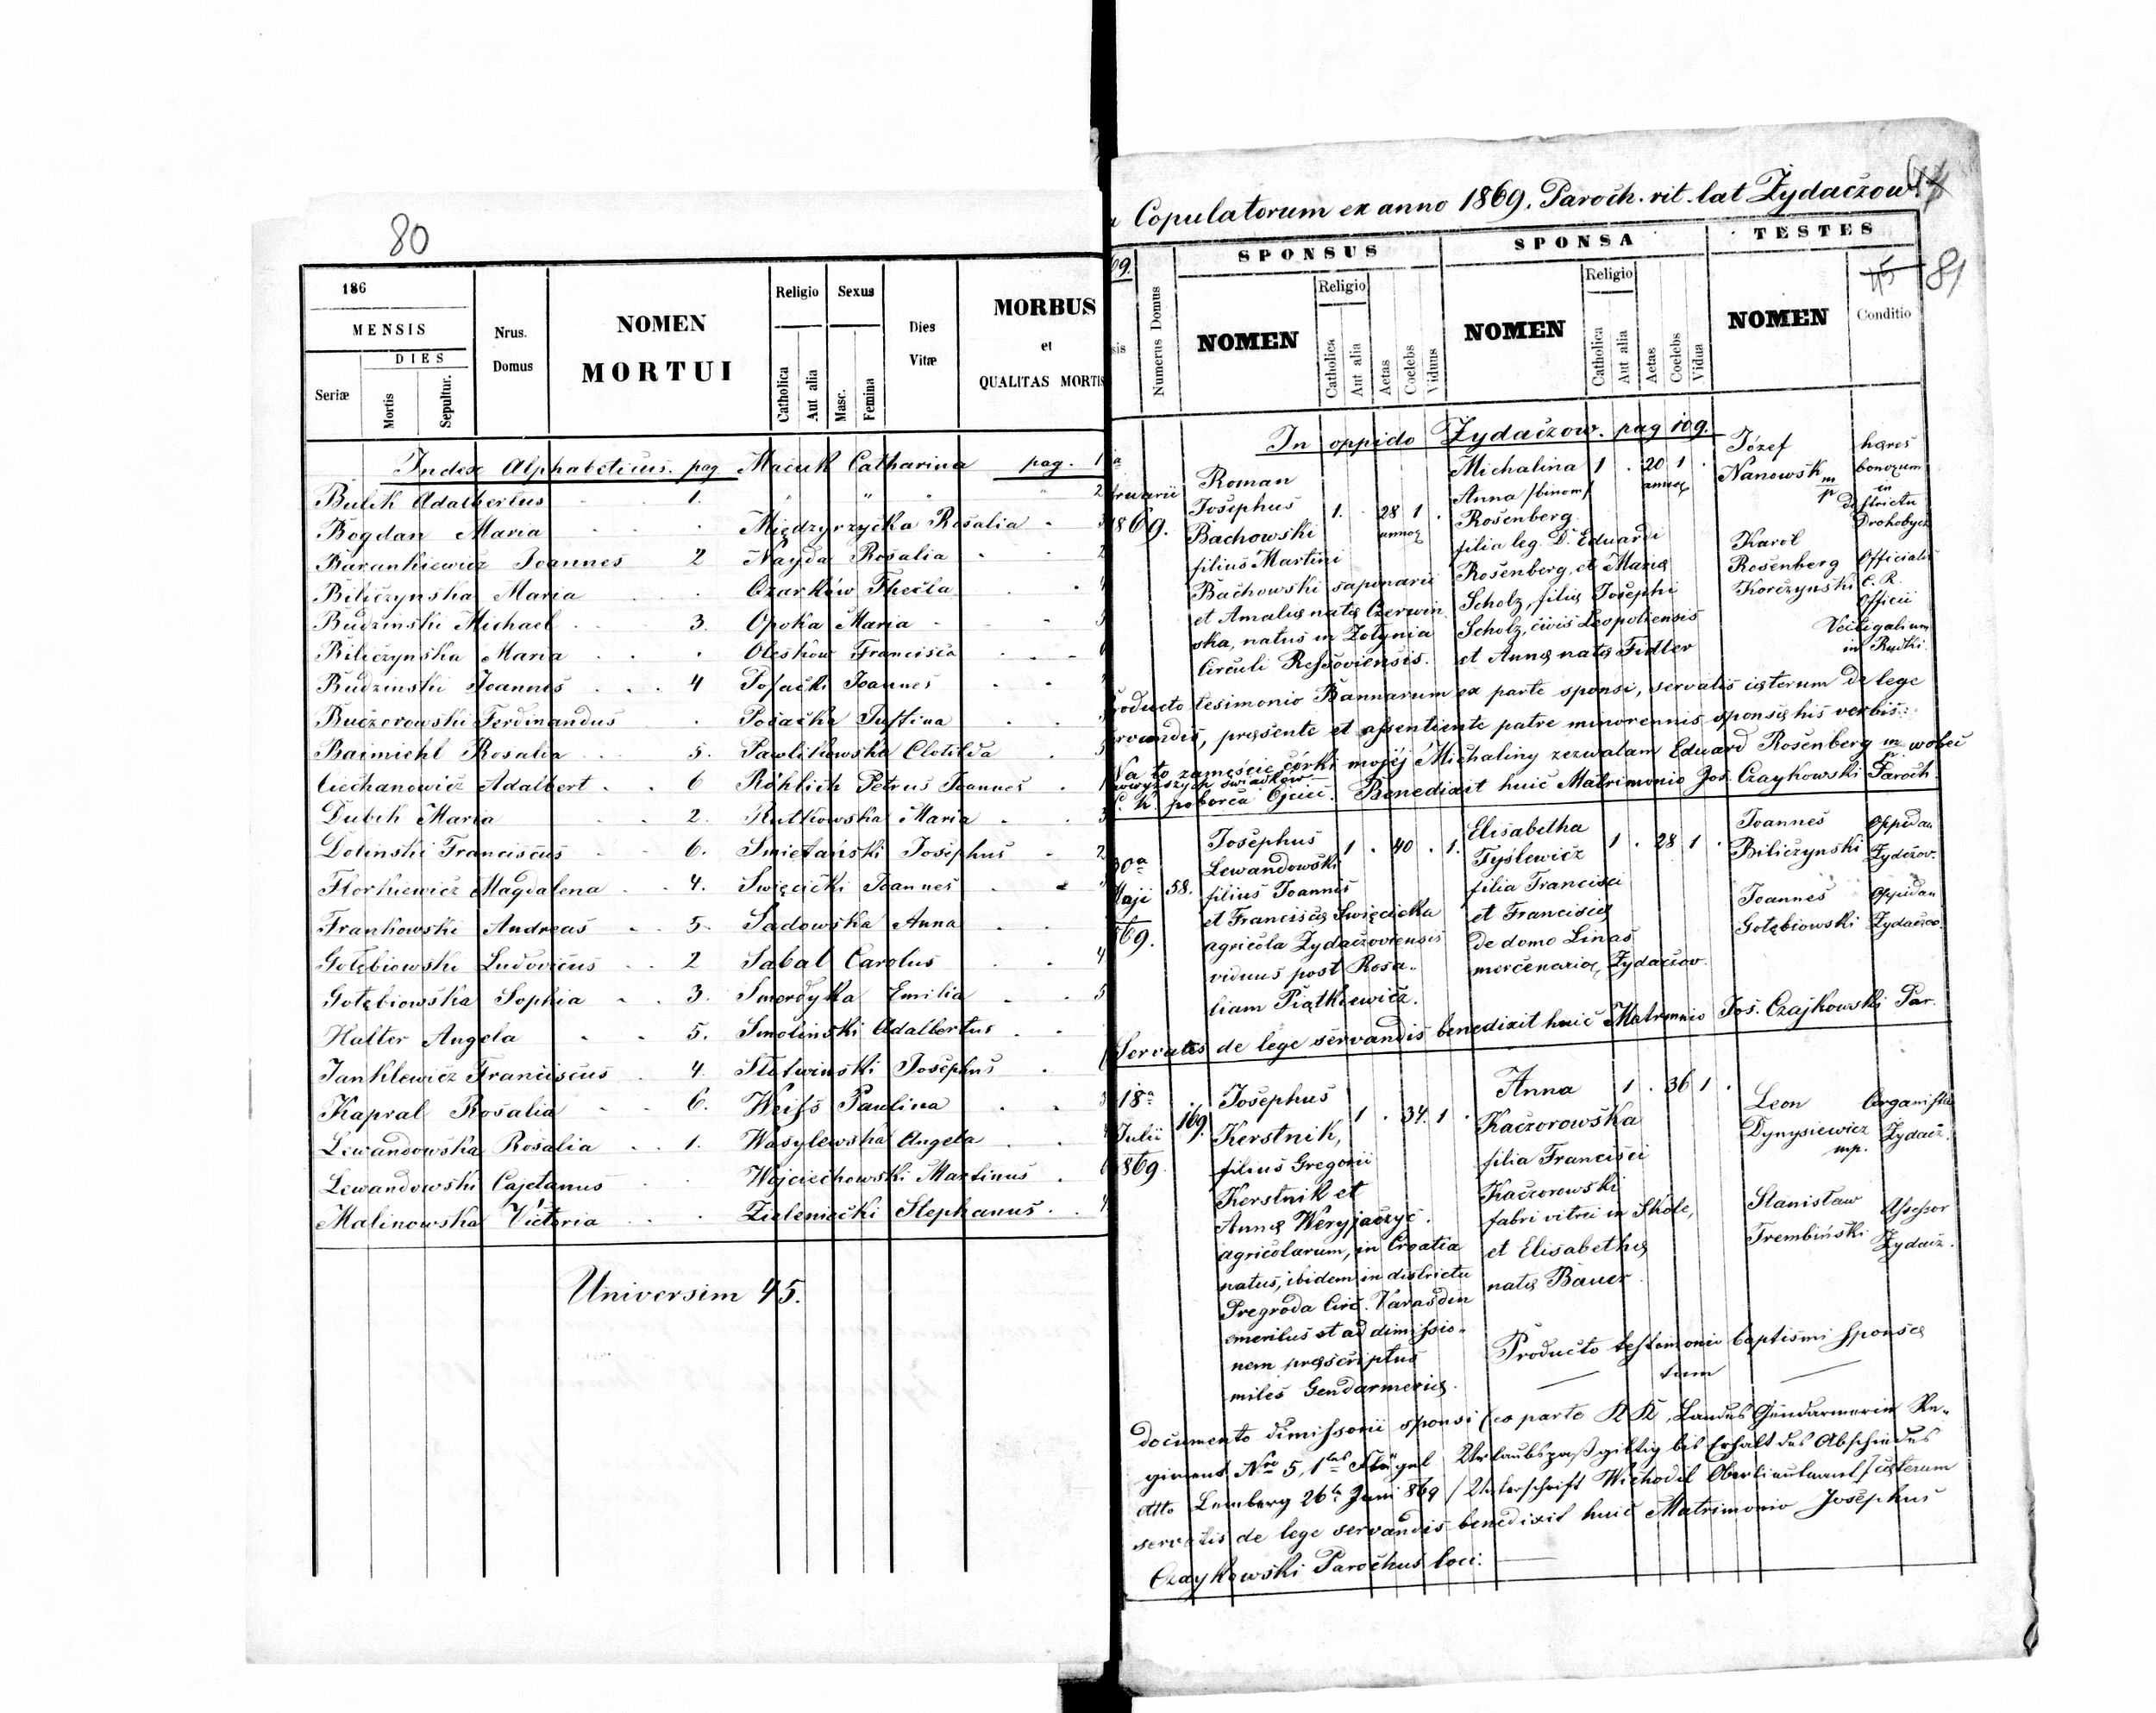 80
186
MENSIS
DIES
Seriæ
Mortis
Sepultur.
Nrus.
Domus
NOMEN
MORTUI
Religio
Catholica
Aut alia
Sexus
Masc.
Femina
Dies
Vitæ
MORBUS
et
QUALITAS MORTIS
Index Alphabeticus. pag Maciuk Catharina pag. 1
Bulik Adalbertus 1. " " " " 2
Bogdan Maria . Międzyrzycka Rosalia . 3
Barankiewicz Joannes 2 Nayda Rosalia . 2
Biliczynska Maria . Ozarków Thecla . 4
Budzinski Michael 3. Opoka Maria - 5
Biliczynska Maria . Oleskow Francisca . 6
Budzinski Joannes . . . 4 Posacki Joannes .
Buczorowski Ferdinandus . Posacka Justina . 3
Baimichl Rosalia . . 5. Pawlikowska Clotilda . 5
Ciechanowicz Adalbert . . 6 Röhlich Petrus Joannes . 1
Dubik Maria . . 2. Rutkowska Maria . 3
Dolinski Franciscus . . 6. Smietański Josephus . 2
Florkiewicz Magdalena . . 4. Święcicki Joannes .
Frankowski Andreas . . 5. Sadowska Anna .
Gołębiowski Ludovicus . . 2 Sabal Carolus . 4
Gołębiowska Sophia . . 3. Smerdyka Emilia . 5
Halter Angela . . 5. Smolinski Adalbertus .
Janklewicz Franciscus . 4. Slotwinski Josephus .
Kapral Rosalia . . 6. Weiss Paulina . 3
Lewandowska Rosalia . . 1. Wasylewska Angela .
Lewandowski Cajetanus . Wojciechowski Martinus .
Malinowska Victoria . . Zieleniecki Stephanus . . 4
Universim 45.
Copulatorum ex anno 1869. Paroch. rit. lat Żydaczow.
81
45
69.
sis
Numerus Domus
SPONSUS
NOMEN
Religio
Catholica
Aut alia
Aetas
Coelebs
Viduus
SPONSA
NOMEN
Religio
Catholica
Aut alia
Aetas
Coelebs
Vidua
TESTES
NOMEN
Conditio
In oppido Żydaczow. pag 109.
bruarii
1869.
Roman
Josephus 1. . 28 1 .
Bachowski annor
filius Martini
Bachowski saponarii
et Amaliæ natæ Czerwin
ska, natus in Żołynia
Circuli Ressoviensis.
Michalina 1 . 20 1 .
Anna /binom/ annor
Rosenberg
filia leg. D. Eduardi
Rosenberg, et Mariæ
Scholz, filiæ Josephi
Scholz, civis Leopoliensis
et Annæ natæ Fidler
Józef
Nanowsk mp
Karol
Rosenberg
Korczynski
hæres
bonorum
in
districtu
Drohobycz
Officialis
C. R.
Officii
Vectigalium
in Rudki.
roducto tesimonio Bannarum ex parte sponsi, servatis cæterum de lege
rvandis, præsente et assentiente patre minorennis sponsæ his verbis:
Na to zamęście córki mojéj Michaliny zezwalam Eduard Rosenberg mp wobec
powyższych świadków
C. k. poborca Ojciec. Benedixit huic Matrimonio Jos. Czaykowski Paroch.
30a
Maji
869.
58.
Josephus 1 . 40 . 1.
Lewandowski
filius Joannis
et Franciscæ Święcicka
agricola Zydaczoviensis
viduus post Rosa-
liam Piątkiewicz.
Elisabetha
Tyslewicz 1 . 28 1 .
filia Francisci
et Franciscæ
de domo Linas
mercenaria, Zydaczov.
Joannes
Biliczynski
Joannes
Gołębiowski
Oppidan
Zydaczov.
Oppidan
Zydaczov
Servatis de lege servandis benedixit huic Matrimnio Jos. Czajkowski Par.
18a
Julii
1869
169.
Josephus
Kerstnik, 1 . 34. 1 .
filius Gregorii
Kerstnik et
Annæ Weryjaczyć.
agricolarum, in Croatia
natus, ibidem in districtu
Pregroda Circ. Varasdin
emeritus et ad dimissio-
nem præscriptus
miles Gendarmeriæ.
Anna 1 . 36 1 .
Kaczorowska
filia Francisci
Kaczorowski
fabri vitrei in Skole,
et Elisabethæ
natæ Bauer.
Leon
Dynysiewicz
mp.
Stanisław
Trembiński
Organista
Zydacz.
Assessor
Zydacz.
Producto testimonio baptismi sponsæ
tum
documento dimissorii sponsi (ex parte KK. Landes Gendarmerie Re-
giment Nro 5, 1tes Flügel Urlaubspaß giltig bis Erhalt des Abschiedes
dtto Lemberg 26te Juni 869 / Unterschrift Wichodil Oberlieutenant / cæterum
servatis de lege servandis benedixit huic Matrimonio Josephus
Czaykowski Parochus loci.